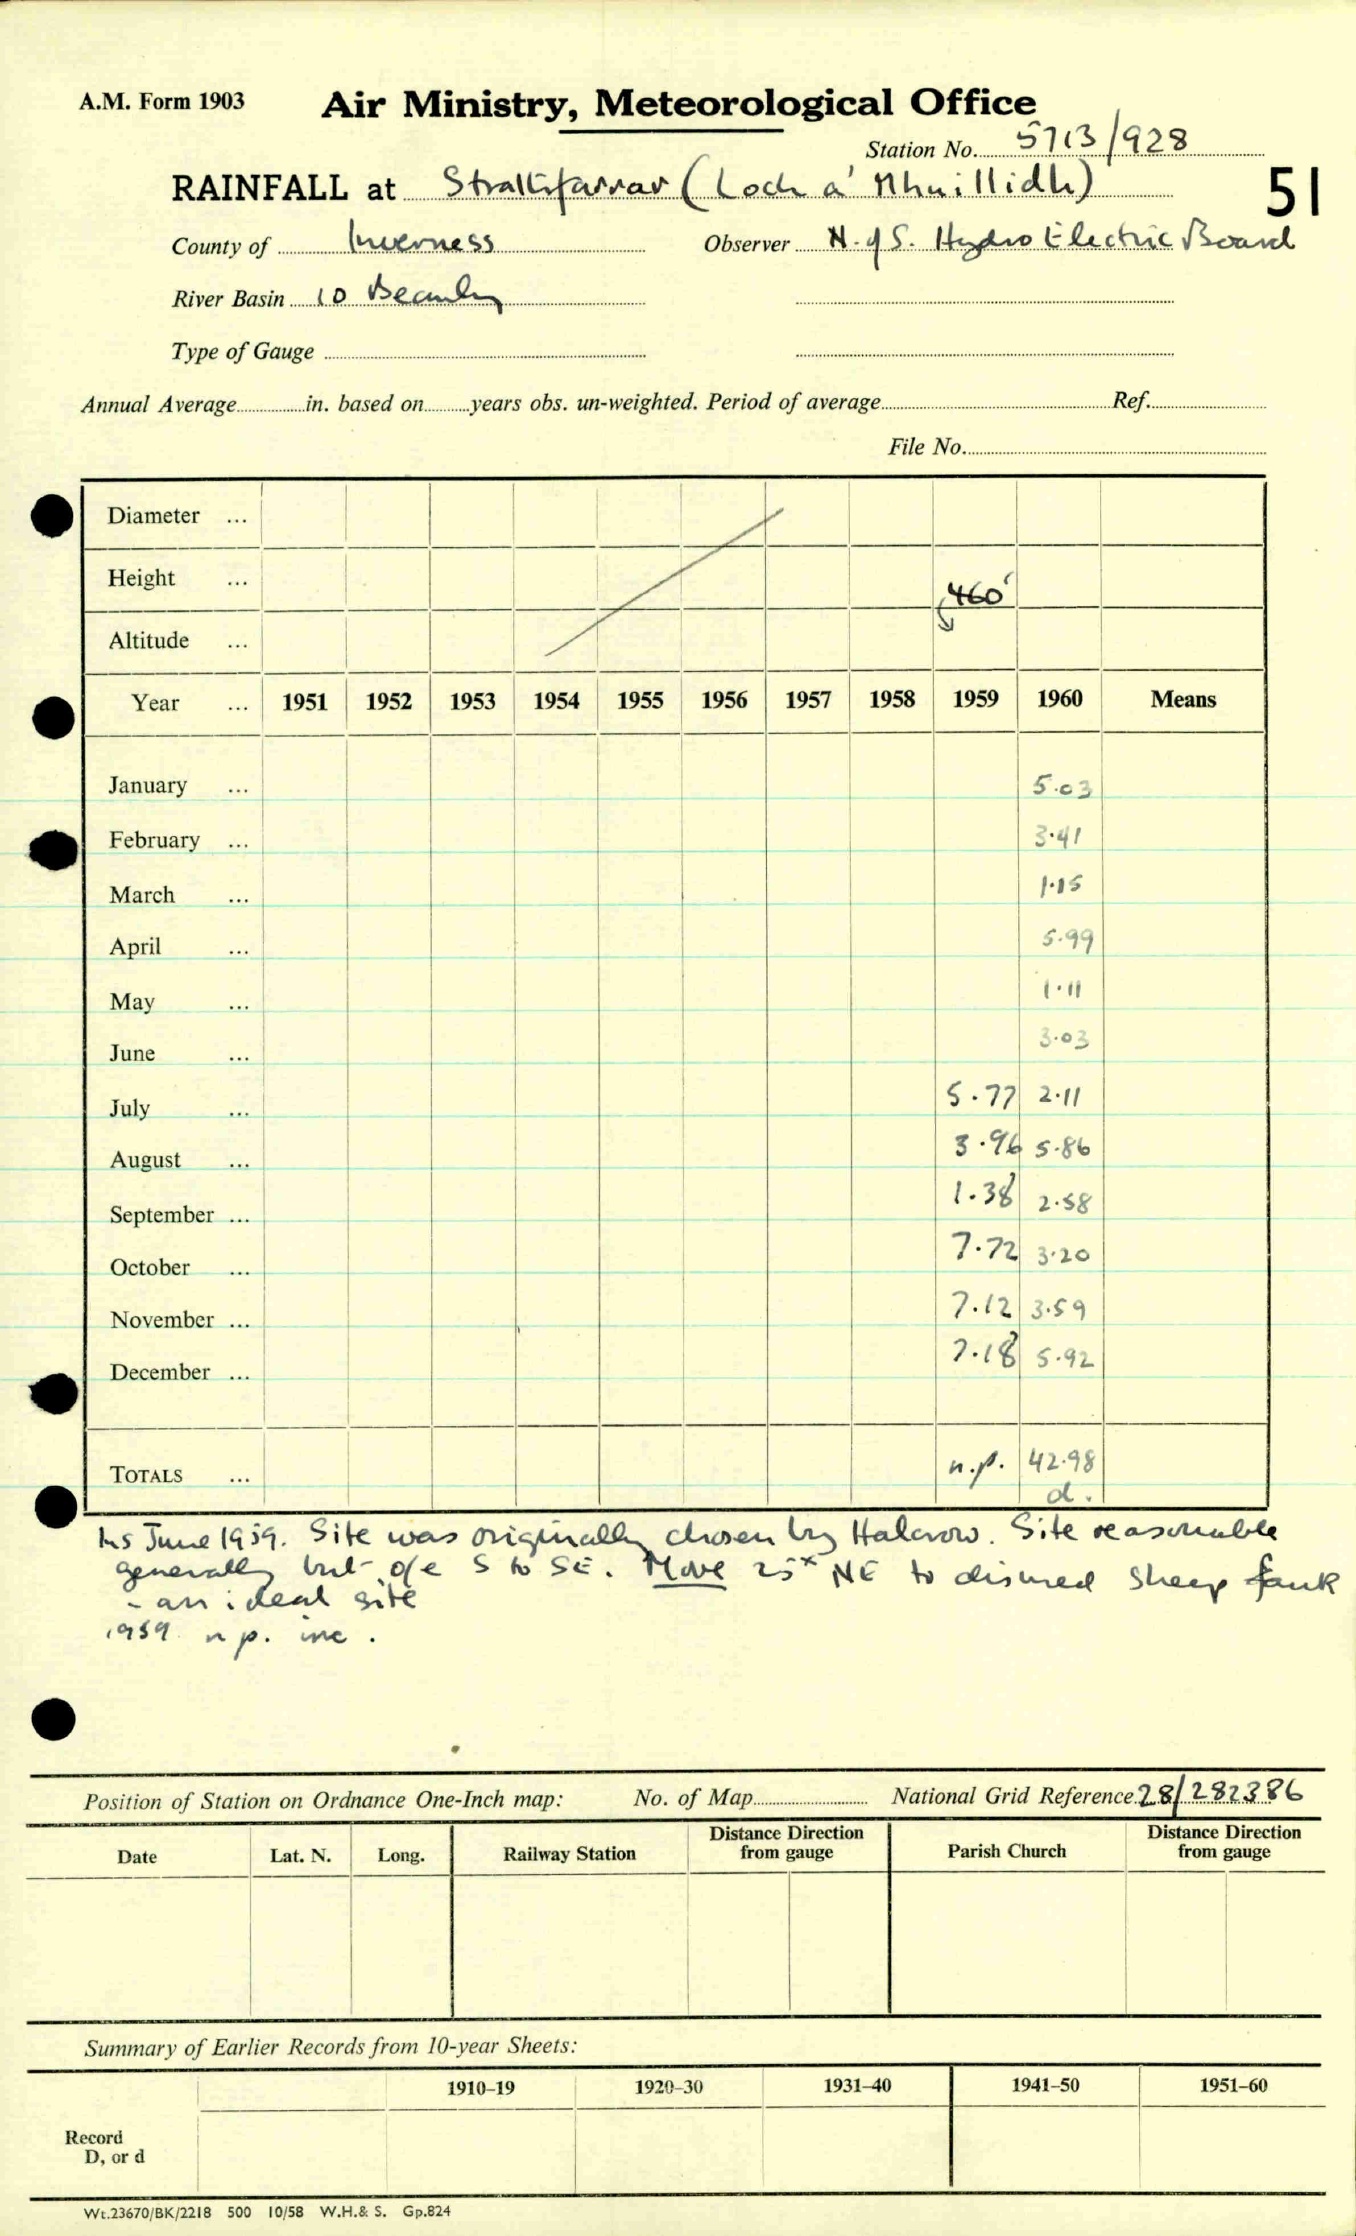 A.M. Form 1903 Air Ministry, Meteorological Office
Station No. 5713/928
RAINFALL at Strathfarrar (Loch a' Mhuillidh) 51
County of Inverness Observer N. of S. Hydro Electric Board
River Basin 10 Beauly
Type of Gauge
Annual Average in. based on years obs. un-weighted. Period of average Ref.
File No.
Diameter ...
Height ... 460'
Altitude ...
Year ... 1951 1952 1953 1954 1955 1956 1957 1958 1959 1960 Means
January ... 5.03
February ... 3.41
March ... 1.15
April ... 5.99
May ... 1.11
June ... 3.03
July ... 5.77 2.11
August ... 3.96 5.86
September ... 1.38 2.58
October ... 7.72 3.20
November ... 7.12 3.59
December ... 7.18 5.92
TOTALS ... n.p. 42.98
d.
Ins June 1959. Site was originally chosen by Halcrow. Site reasonable
generally but o/e S to SE. Move 25x NE to disused sheep fank
- an ideal site
1959 n p. inc.
Position of Station on Ordnance One-Inch map: No. of Map National Grid Reference 28/282386
Date Lat. N. Long. Railway Station Distance Direction from gauge Parish Church Distance Direction from gauge
Summary of Earlier Records from 10-year Sheets:
1910–19 1920–30 1931–40 1941–50 1951–60
Record
D, or d
Wt.23670/BK/2218 500 10/58 W.H.& S. Gp.824